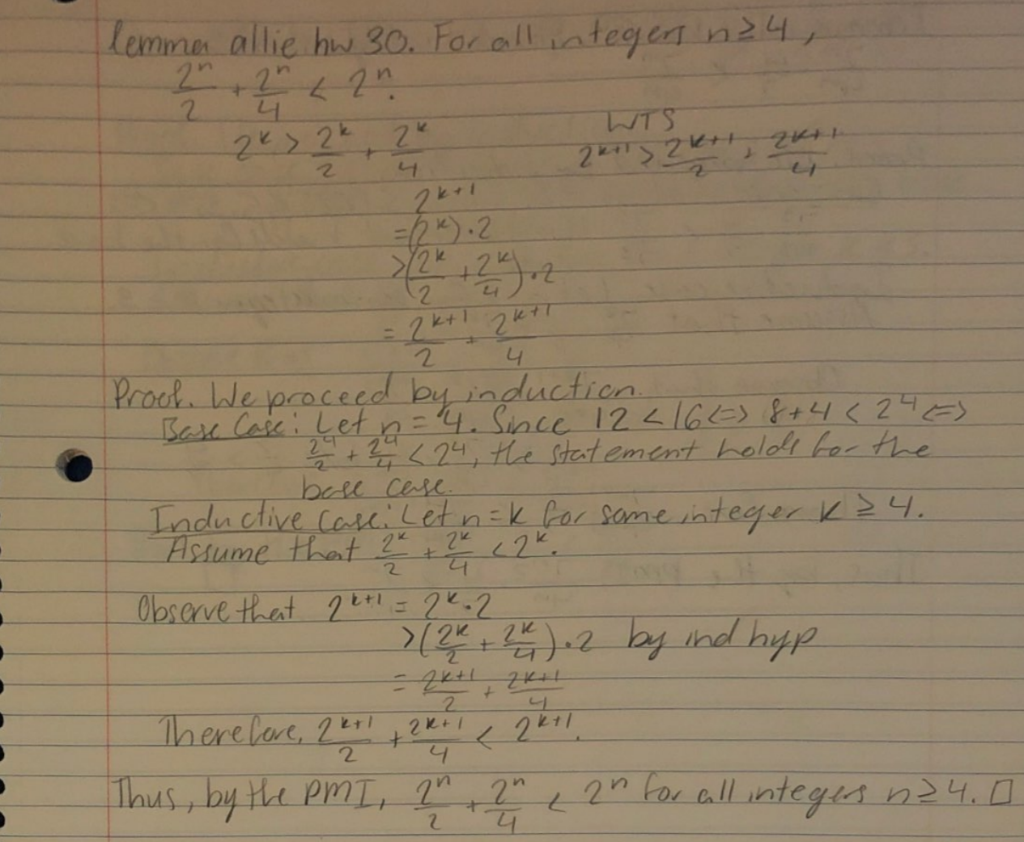 lemma allie hw 30. For all integers n ≥ 4,
2^n/2 + 2^n/4 < 2^n.
2^k > 2^k/2 + 2^k/4
WTS
2^{k+1} > 2^{k+1}/2 + 2^{k+1}/4
2^{k+1}
= (2^k) · 2
> (2^k/2 + 2^k/4) · 2
= 2^{k+1}/2 + 2^{k+1}/4
Proof. We proceed by induction.
Base Case: Let n = 4. Since 12 < 16 <=> 8 + 4 < 2^4 <=>
2^4/2 + 2^4/4 < 2^4, the statement holds for the
base case.
Inductive Case: Let n = k for some integer k ≥ 4.
Assume that 2^k/2 + 2^k/4 < 2^k.
Observe that 2^{k+1} = 2^k · 2
> (2^k/2 + 2^k/4) · 2 by ind hyp
= 2^{k+1}/2 + 2^{k+1}/4
Therefore, 2^{k+1}/2 + 2^{k+1}/4 < 2^{k+1}.
Thus, by the PMI, 2^n/2 + 2^n/4 < 2^n for all integers n ≥ 4. □